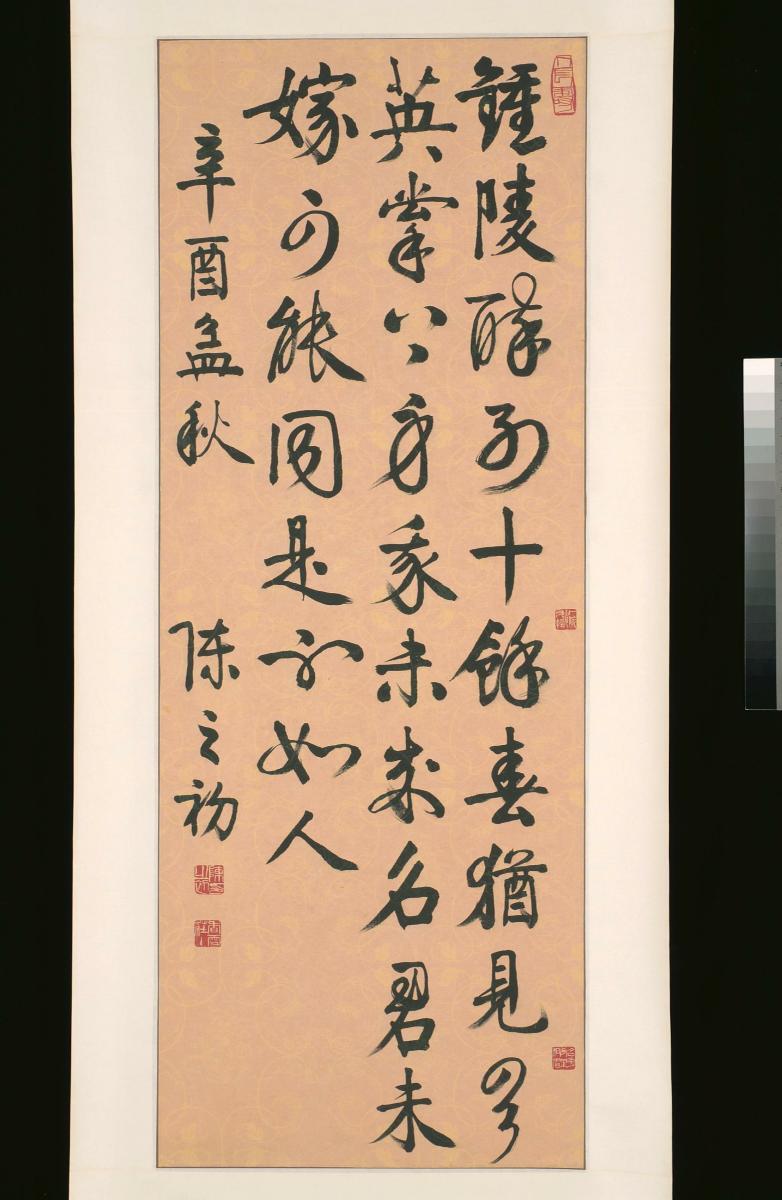 鍾陵醉別十餘春猶見雲
英掌上身我未成名君未
嫁可能同是不如人
辛酉孟秋 陳之初